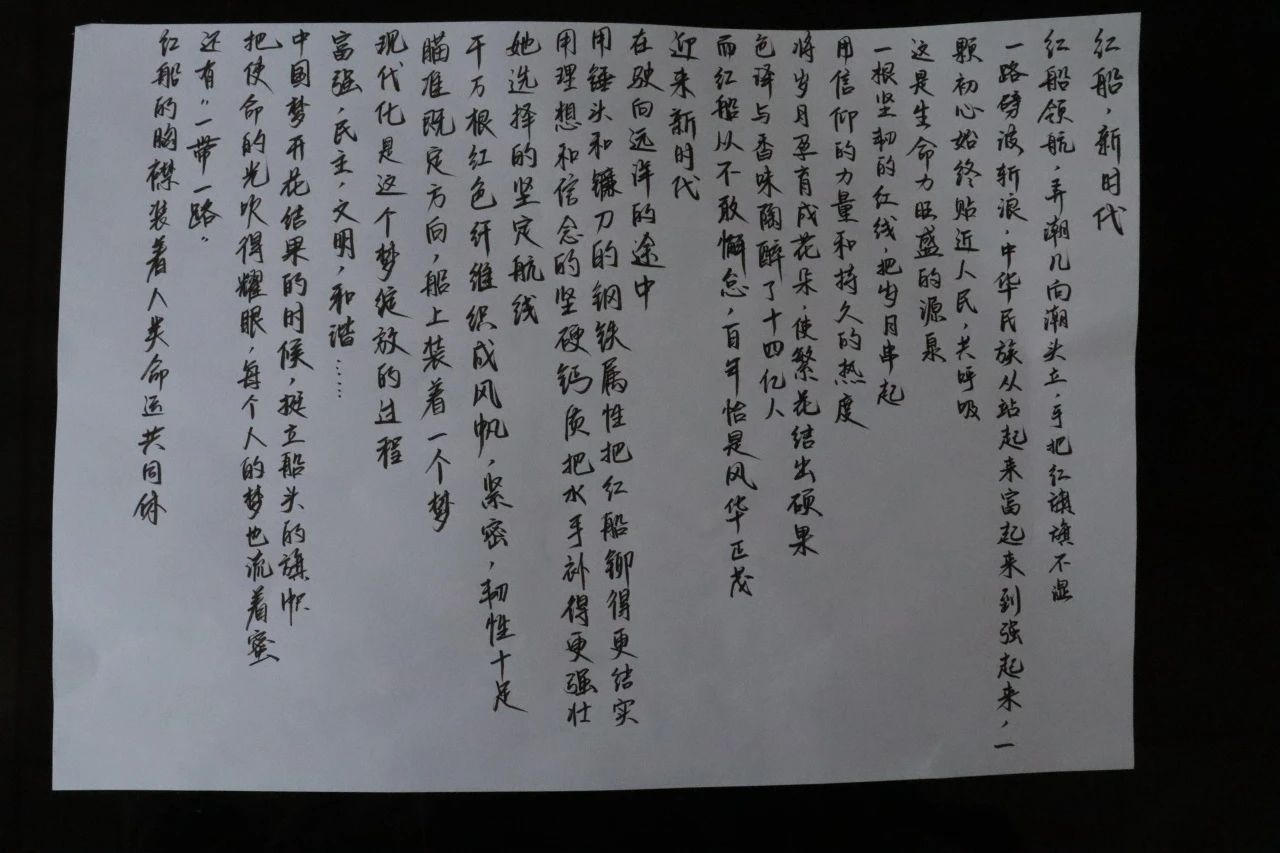 红船，新时代
红船领航，弄潮儿向潮头立，手把红旗旗不湿
一路劈波斩浪，中华民族从站起来富起来到强起来，一
颗初心始终贴近人民，共呼吸
这是生命力旺盛的源泉
一根坚韧的红线，把岁月串起
用信仰的力量和持久的热度
将岁月孕育成花朵，使繁花结出硕果
色译与香味陶醉了十四亿人
而红船从不敢懈怠，百年恰是风华正茂
迎来新时代
在驶向远洋的途中
用锤头和镰刀的钢铁属性把红船铆得更结实
用理想和信念的坚硬钙质把水手补得更强壮
她选择的坚定航线
千万根红色纤维织成风帆，紧密，韧性十足
瞄准既定方向，船上装着一个梦
现代化是这个梦绽放的过程
富强，民主，文明，和谐……
中国梦开花结果的时候，挺立船头的旗帜
把使命的光吹得耀眼，每个人的梦也流着蜜
还有“一带一路”
红船的胸襟装着人类命运共同体